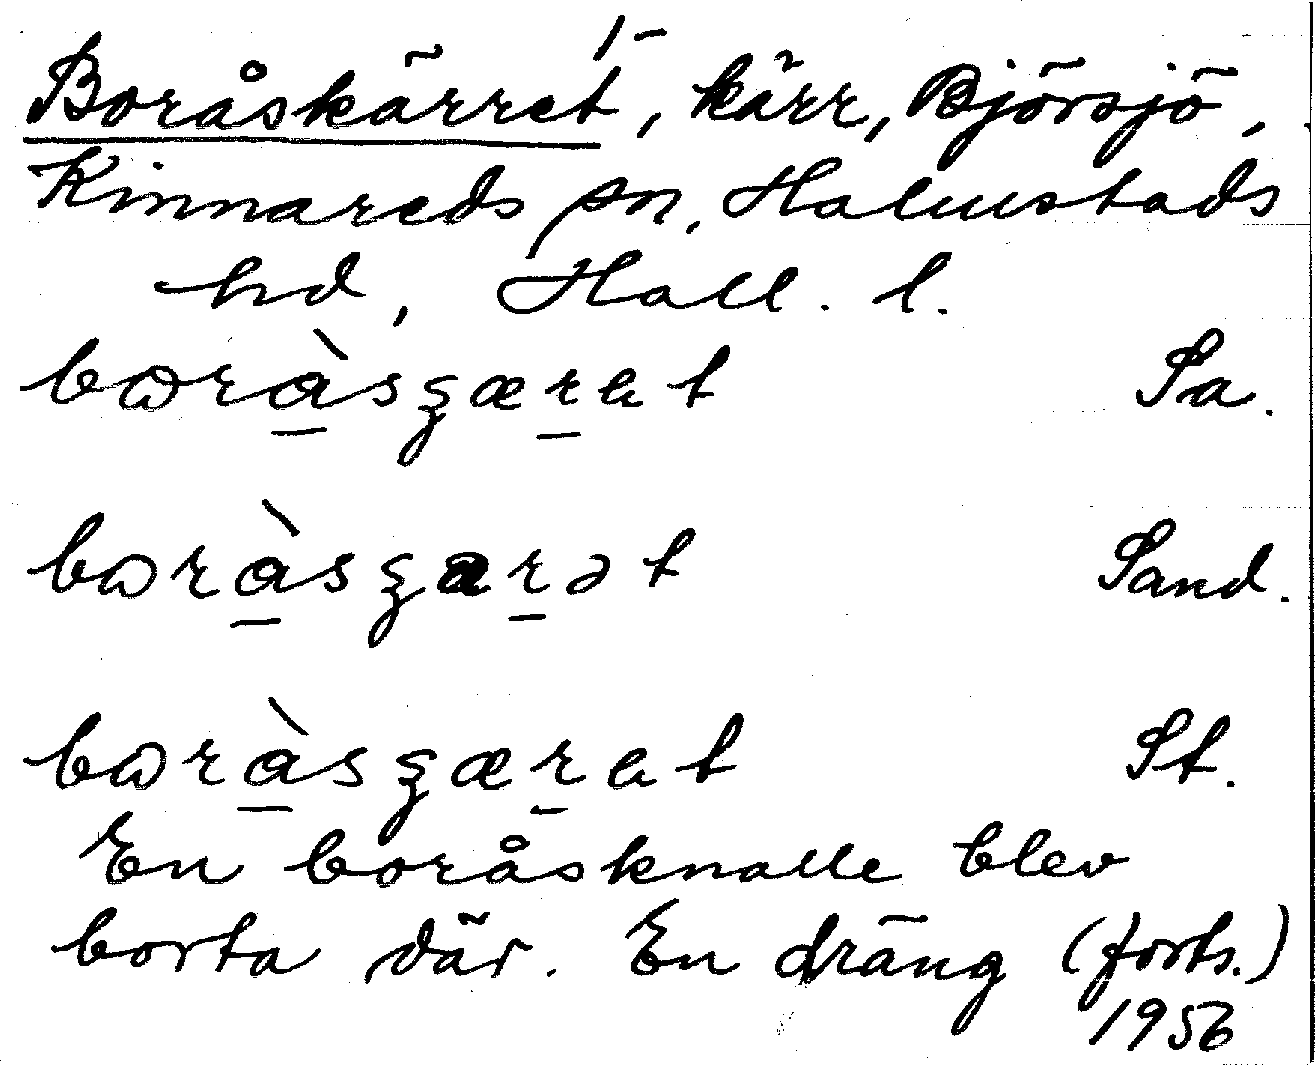 1-
Boråskärret, kärr, Björsjö,
Kinnareds sn, Halmstads
hd, Hall. l.
bωràsʒæret Sa.
bωràsʒarət Sand.
bωràsʒæret St.
En boråsknalle blev
borta där. En dräng (forts.)
1956